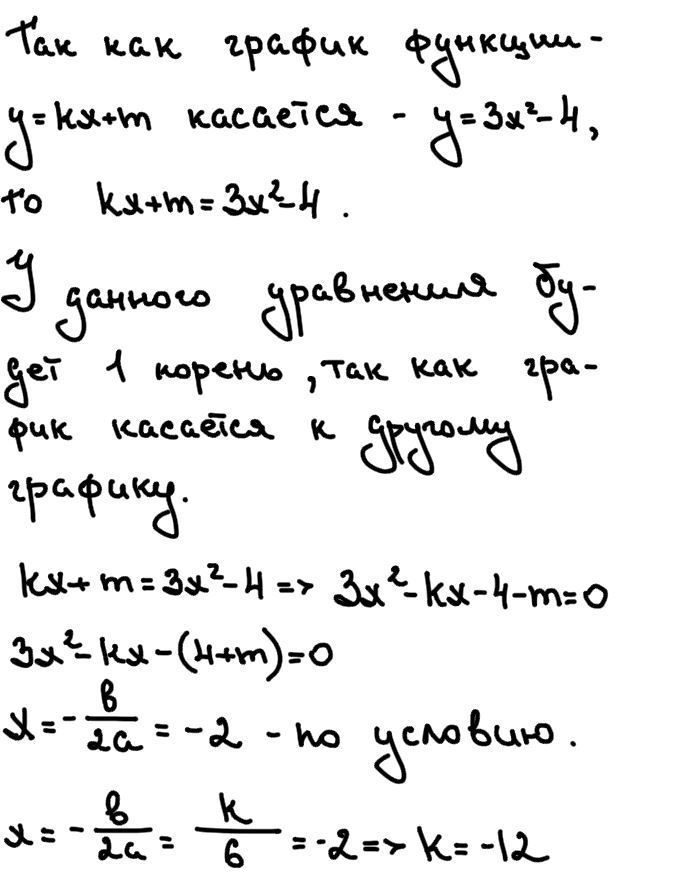 Так как график функции-
y=kx+m касается - y=3x²-4,
то kx+m=3x²-4.
У данного уравнения бу-
дет 1 корень, так как гра-
фик касается к другому
графику.
kx+m=3x²-4=> 3x²-kx-4-m=0
3x²-kx-(4+m)=0
x=-b/2a=-2 - по условию.
x=-b/2a=k/6=-2=>k=-12